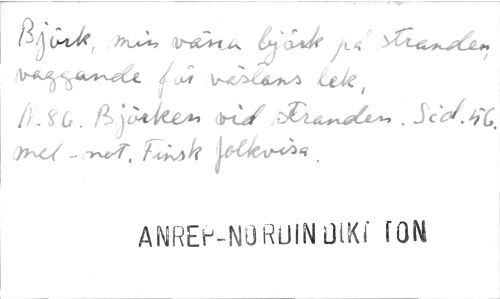 Björk, min vären björk på stranden,
vaggande för västans lek,
N. 86. Björken vid stranden. Sid. 56.
mel-not. Finsk folkvisa.
ANREP-NORDIN DIKT TON